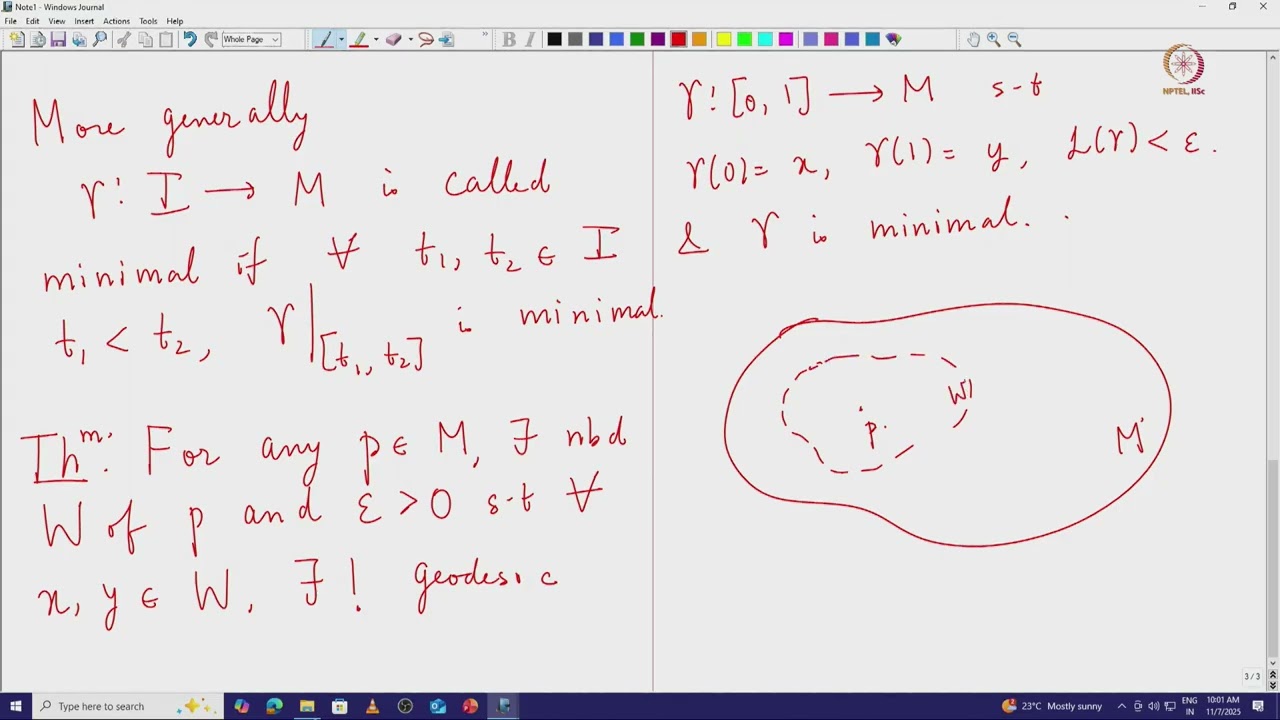 Note1 - Windows Journal
File Edit View Insert Actions Tools Help
Whole Page
B I
NPTEL, IISc
More generally
γ: I → M is called
minimal if ∀ t₁, t₂ ∈ I
t₁ < t₂, γ|[t₁, t₂] is minimal.
Thm: For any p ∈ M, ∃ nbd
W of p and ε > 0 s.t ∀
x, y ∈ W, ∃! geodesic
γ: [0, 1] → M s-t
γ(0) = x, γ(1) = y, L(γ) < ε.
& γ is minimal.
W
p
M
3 / 3
Type here to search
23°C Mostly sunny
ENG
IN
10:01 AM
11/7/2025